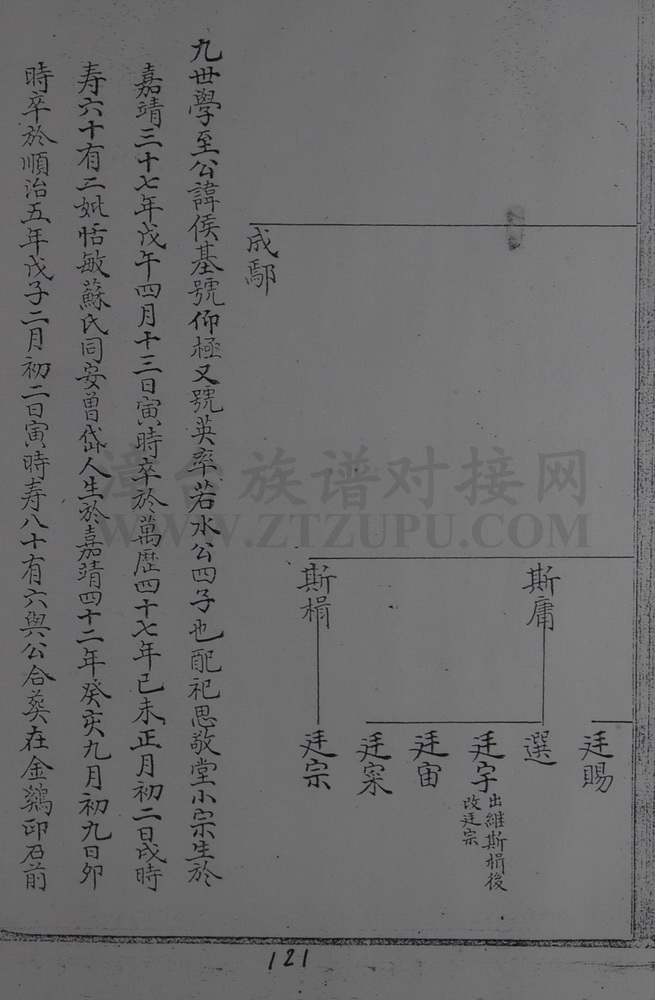 廷賜
斯庸
選
廷宇 出繼斯楫後
改廷宗
廷宙
廷寀
斯楫
廷宗
成鄢
九世學至公諱侯基號仰極又號英率若水公四子也配祀思敬堂小宗生於
嘉靖三十七年戊午四月十三日寅時卒於萬歷四十七年己未正月初二日戌時
寿六十有二妣恬敏蘇氏同安曾岱人生於嘉靖四十二年癸亥九月初九日卯
時卒於順治五年戊子二月初二日寅時寿八十有六與公合葬在金鷄印石前
漳台族谱对接网
WWW.ZTZUPU.COM
121